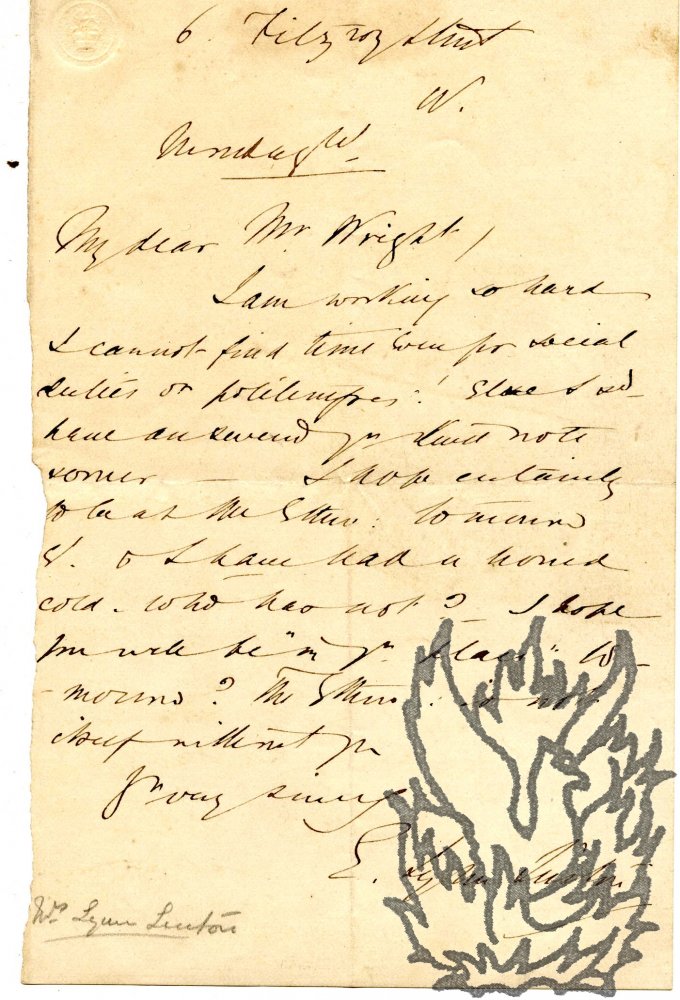 6. Fitzroy Street
W.
My dear Mr Wright,
I am working so hard
I cannot find time even for social
duties or politenesses! Else I sd
have answered yr kind note
sooner — I hope certainly
to be at the Ethno: tomorrow
I have had a horrid
cold. Who has not? I hope
you will be "in yr place" to-
-morrow? The Ethno: is not
itself without you
Yr very sincerely
E. Lynn Linton
Mrs Lynn Linton